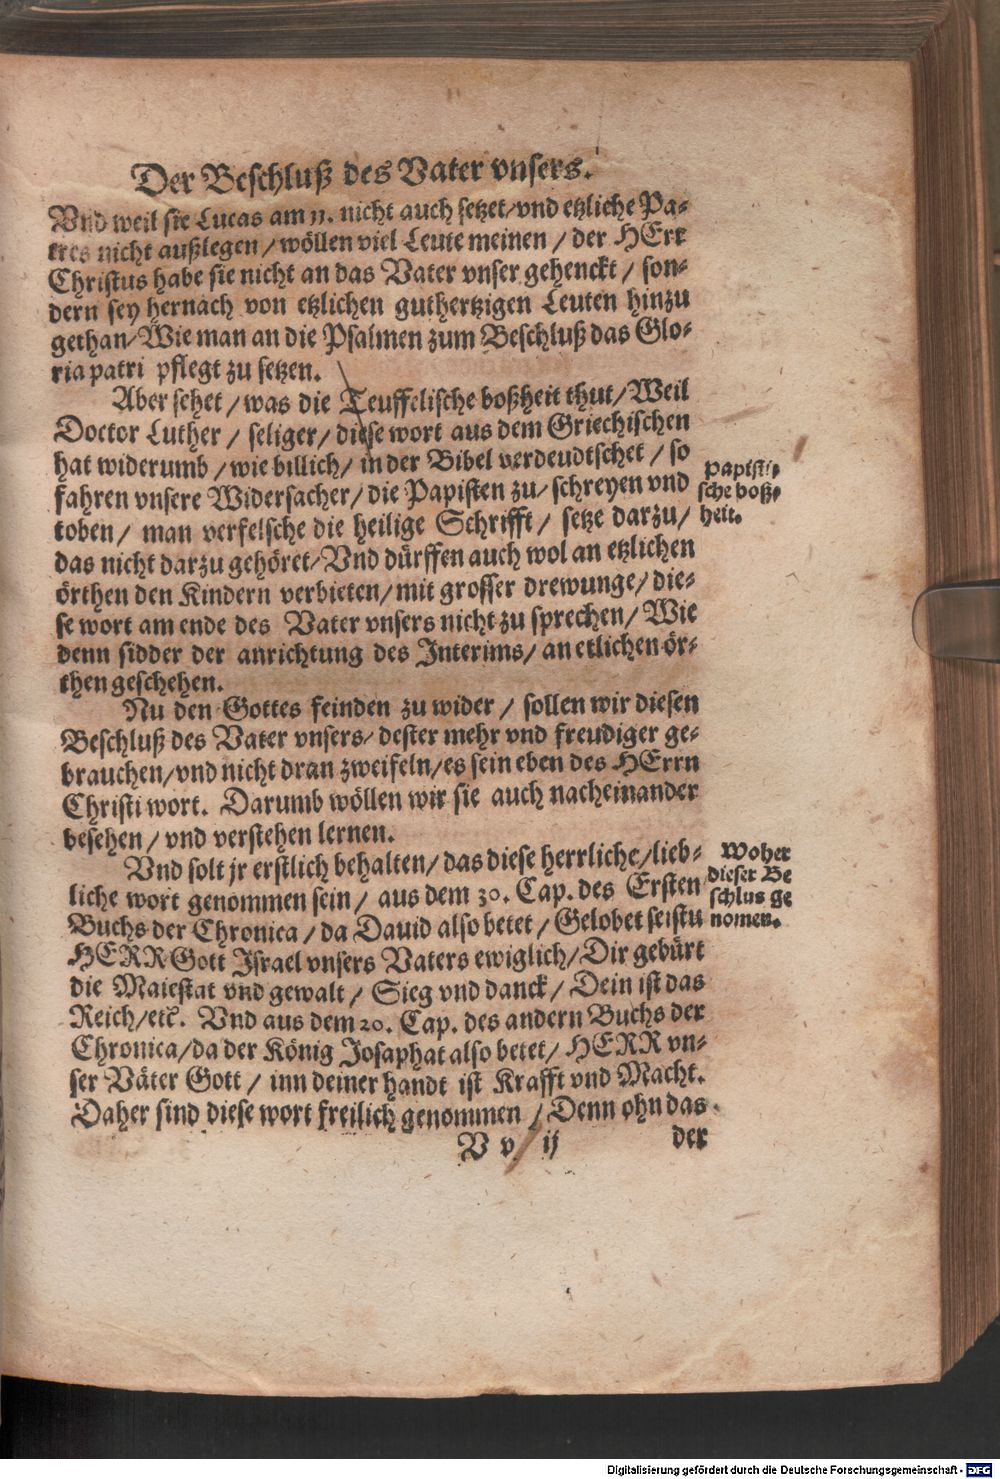 Der Beschluß des Vater vnsers.
Vnd weil sie Lucas am 11. nicht auch setzet/vnd etzliche Pa-
tres nicht außlegen/wöllen viel Leute meinen/der HErr
Christus habe sie nicht an das Vater vnser gehenckt/son-
dern sey hernach von etzlichen guthertzigen Leuten hinzu
gethan/Wie man an die Psalmen zum Beschluß das Glo-
ria patri pflegt zu setzen.
Aber sehet/was die Teuffelische boßheit thut/Weil
Doctor Luther/seliger/diese wort aus dem Griechischen
hat widerumb/wie billich/in der Bibel verdeudtschet/so
fahren vnsere Widersacher/die Papisten zu/schreyen vnd
toben/man verfelsche die heilige Schrifft/setze darzu/
das nicht darzu gehöret/Vnd dürffen auch wol an etzlichen
örthen den Kindern verbieten/mit grosser drewunge/die-
se wort am ende des Vater vnsers nicht zu sprechen/Wie
denn sidder der anrichtung des Interims/an etlichen ör-
then geschehen.
Papisti-
sche boß-
heit.
Nu den Gottes feinden zu wider/sollen wir diesen
Beschluß des Vater vnsers/dester mehr vnd freudiger ge-
brauchen/vnd nicht dran zweifeln/es sein eben des HErrn
Christi wort. Darumb wöllen wir sie auch nacheinander
besehen/vnd verstehen lernen.
Vnd solt jr erstlich behalten/das diese herrliche/lieb-
liche wort genommen sein/aus dem 30. Cap. des Ersten
Buchs der Chronica/da Dauid also betet/Gelobet seistu
HERR Gott Israel vnsers Vaters ewiglich/Dir gebürt
die Maiestat vnd gewalt/Sieg vnd danck/Dein ist das
Reich/etc. Vnd aus dem 20. Cap. des andern Buchs der
Chronica/da der König Josaphat also betet/HERR vn-
ser Väter Gott/inn deiner handt ist Krafft vnd Macht.
Daher sind diese wort freilich genommen/Denn ohn das
Woher
dieser Be
schlus ge
nomen.
V v ij
der
Digitalisierung gefördert durch die Deutsche Forschungsgemeinschaft - DFG